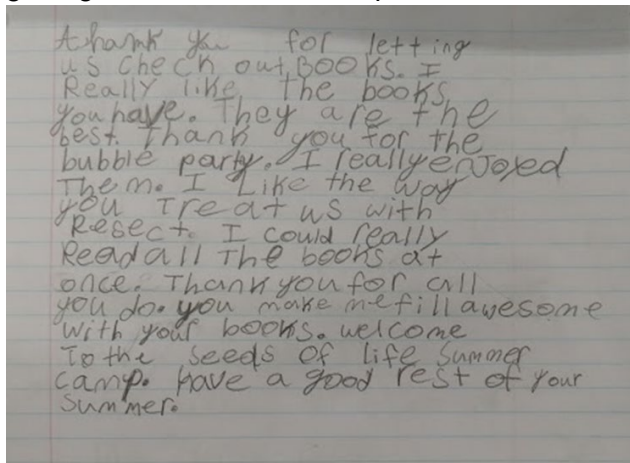 thank you for letting
us check out, BOOKS. I
Really like the books
you have. They are the
best. Thank you for the
bubble party. I really enjoxed
Them. I Like the way
you Treat us with
Resect. I could really
Read all The books at
once. Thank you for all
you do. you make me fill awesome
with your books. welcome
To the seeds of life summer
camp. have a good rest of your
summer.